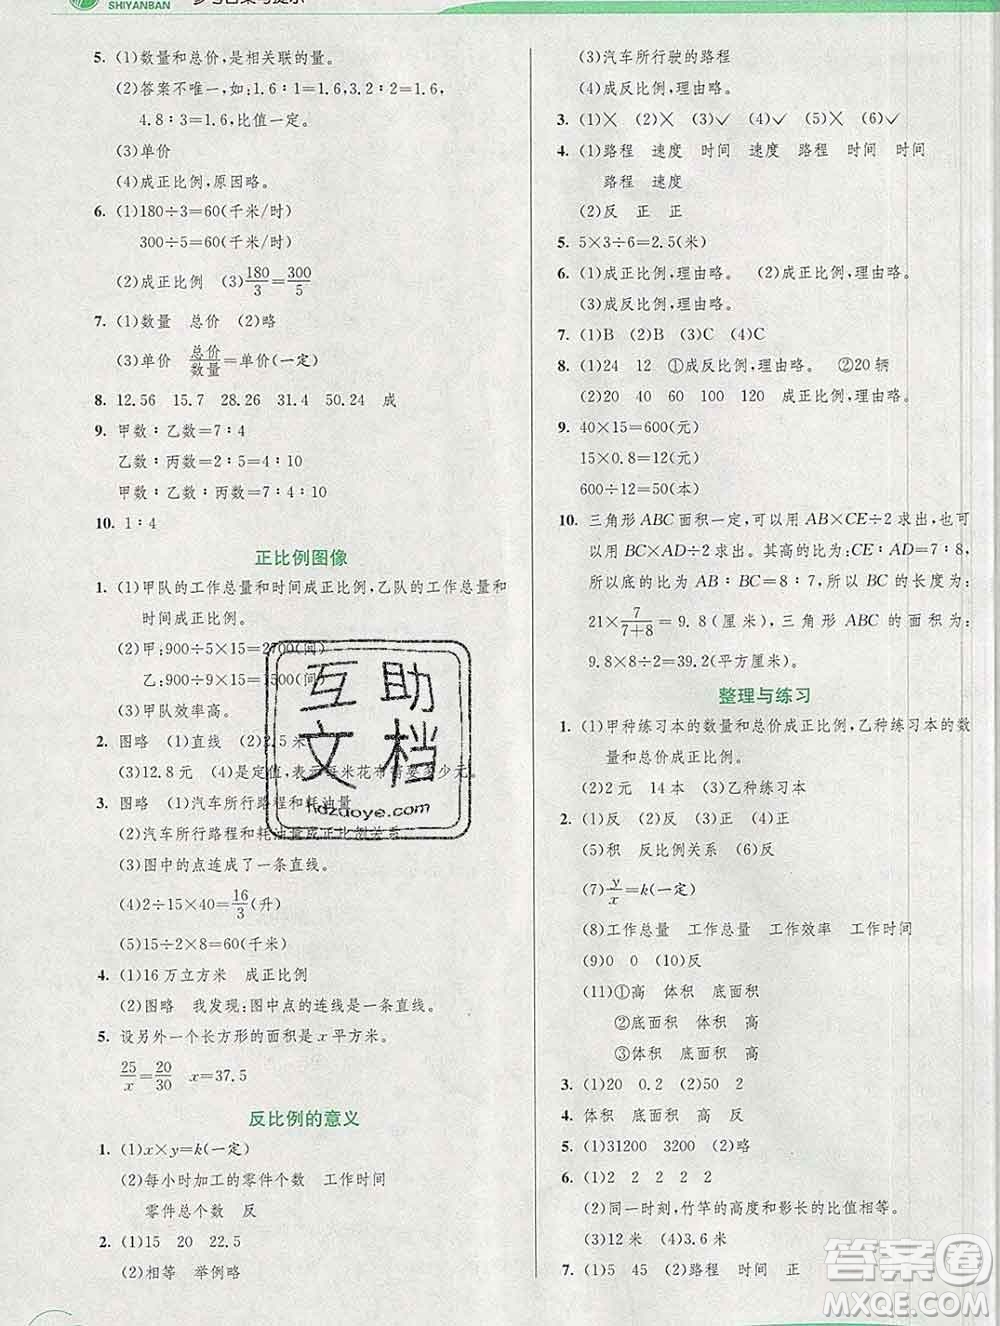 SHIYANBAN
参考答案与提示
5. (1)数量和总价,是相关联的量。
(2)答案不唯一,如:1.6∶1=1.6,3.2∶2=1.6,
4.8∶3=1.6,比值一定。
(3)单价
(4)成正比例,原因略。
6. (1)180÷3=60(千米/时)
300÷5=60(千米/时)
(2)成正比例 (3)180/3=300/5
7. (1)数量 总价 (2)略
(3)单价 总价/数量=单价(一定)
8. 12.56 15.7 28.26 31.4 50.24 成
9. 甲数∶乙数=7∶4
乙数∶丙数=2∶5=4∶10
甲数∶乙数∶丙数=7∶4∶10
10. 1∶4
正比例图像
1. (1)甲队的工作总量和时间成正比例,乙队的工作总量和
时间成正比例。
(2)甲:900÷5×15=2700(间)
乙:900÷9×15=1500(间)
(3)甲队效率高。
2. 图略 (1)直线 (2)2.5米
(3)12.8元 (4)是定值,表示每米花布需要多少元。
3. 图略 (1)汽车所行路程和耗油量
(2)汽车所行路程和耗油量成正比例关系。
(3)图中的点连成了一条直线。
(4)2÷15×40=16/3(升)
(5)15÷2×8=60(千米)
4. (1)16万立方米 成正比例
(2)图略 我发现:图中点的连线是一条直线。
5. 设另外一个长方形的面积是x平方米。
25/x=20/30 x=37.5
反比例的意义
1. (1)x×y=k(一定)
(2)每小时加工的零件个数 工作时间
零件总个数 反
2. (1)15 20 22.5
(2)相等 举例略
(3)汽车所行驶的路程
(4)成反比例,理由略。
3. (1)× (2)× (3)✓ (4)✓ (5)× (6)✓
4. (1)路程 速度 时间 速度 路程 时间 时间
路程 速度
(2)反 正 正
5. 5×3÷6=2.5(米)
6. (1)成正比例,理由略。 (2)成正比例,理由略。
(3)成反比例,理由略。
7. (1)B (2)B (3)C (4)C
8. (1)24 12 ①成反比例,理由略。 ②20辆
(2)20 40 60 100 120 成正比例,理由略。
9. 40×15=600(元)
15×0.8=12(元)
600÷12=50(本)
10. 三角形ABC面积一定,可以用AB×CE÷2求出,也可
以用BC×AD÷2求出。其高的比为:CE∶AD=7∶8,
所以底的比为AB∶BC=8∶7,所以BC的长度为:
21×7/(7+8)=9.8(厘米),三角形ABC的面积为:
9.8×8÷2=39.2(平方厘米)。
整理与练习
1. (1)甲种练习本的数量和总价成正比例,乙种练习本的数
量和总价成正比例。
(2)2元 14本 (3)乙种练习本
2. (1)反 (2)反 (3)正 (4)正
(5)积 反比例关系 (6)反
(7)y/x=k(一定)
(8)工作总量 工作总量 工作效率 工作时间
(9)0 0 (10)反
(11)①高 体积 底面积
②底面积 体积 高
③体积 底面积 高
3. (1)20 0.2 (2)5400
4. 体积 底面积 高 反
5. (1)31200 3200 (2)略
6. (1)2 2 2 2
(2)同一时刻,竹竿的高度和影长的比值相等。
(3)12米 (4)3.6米
7. (1)5 45 (2)路程 时间 正
互助
文档
hdzuoye.com
答案圈
MXQE.COM